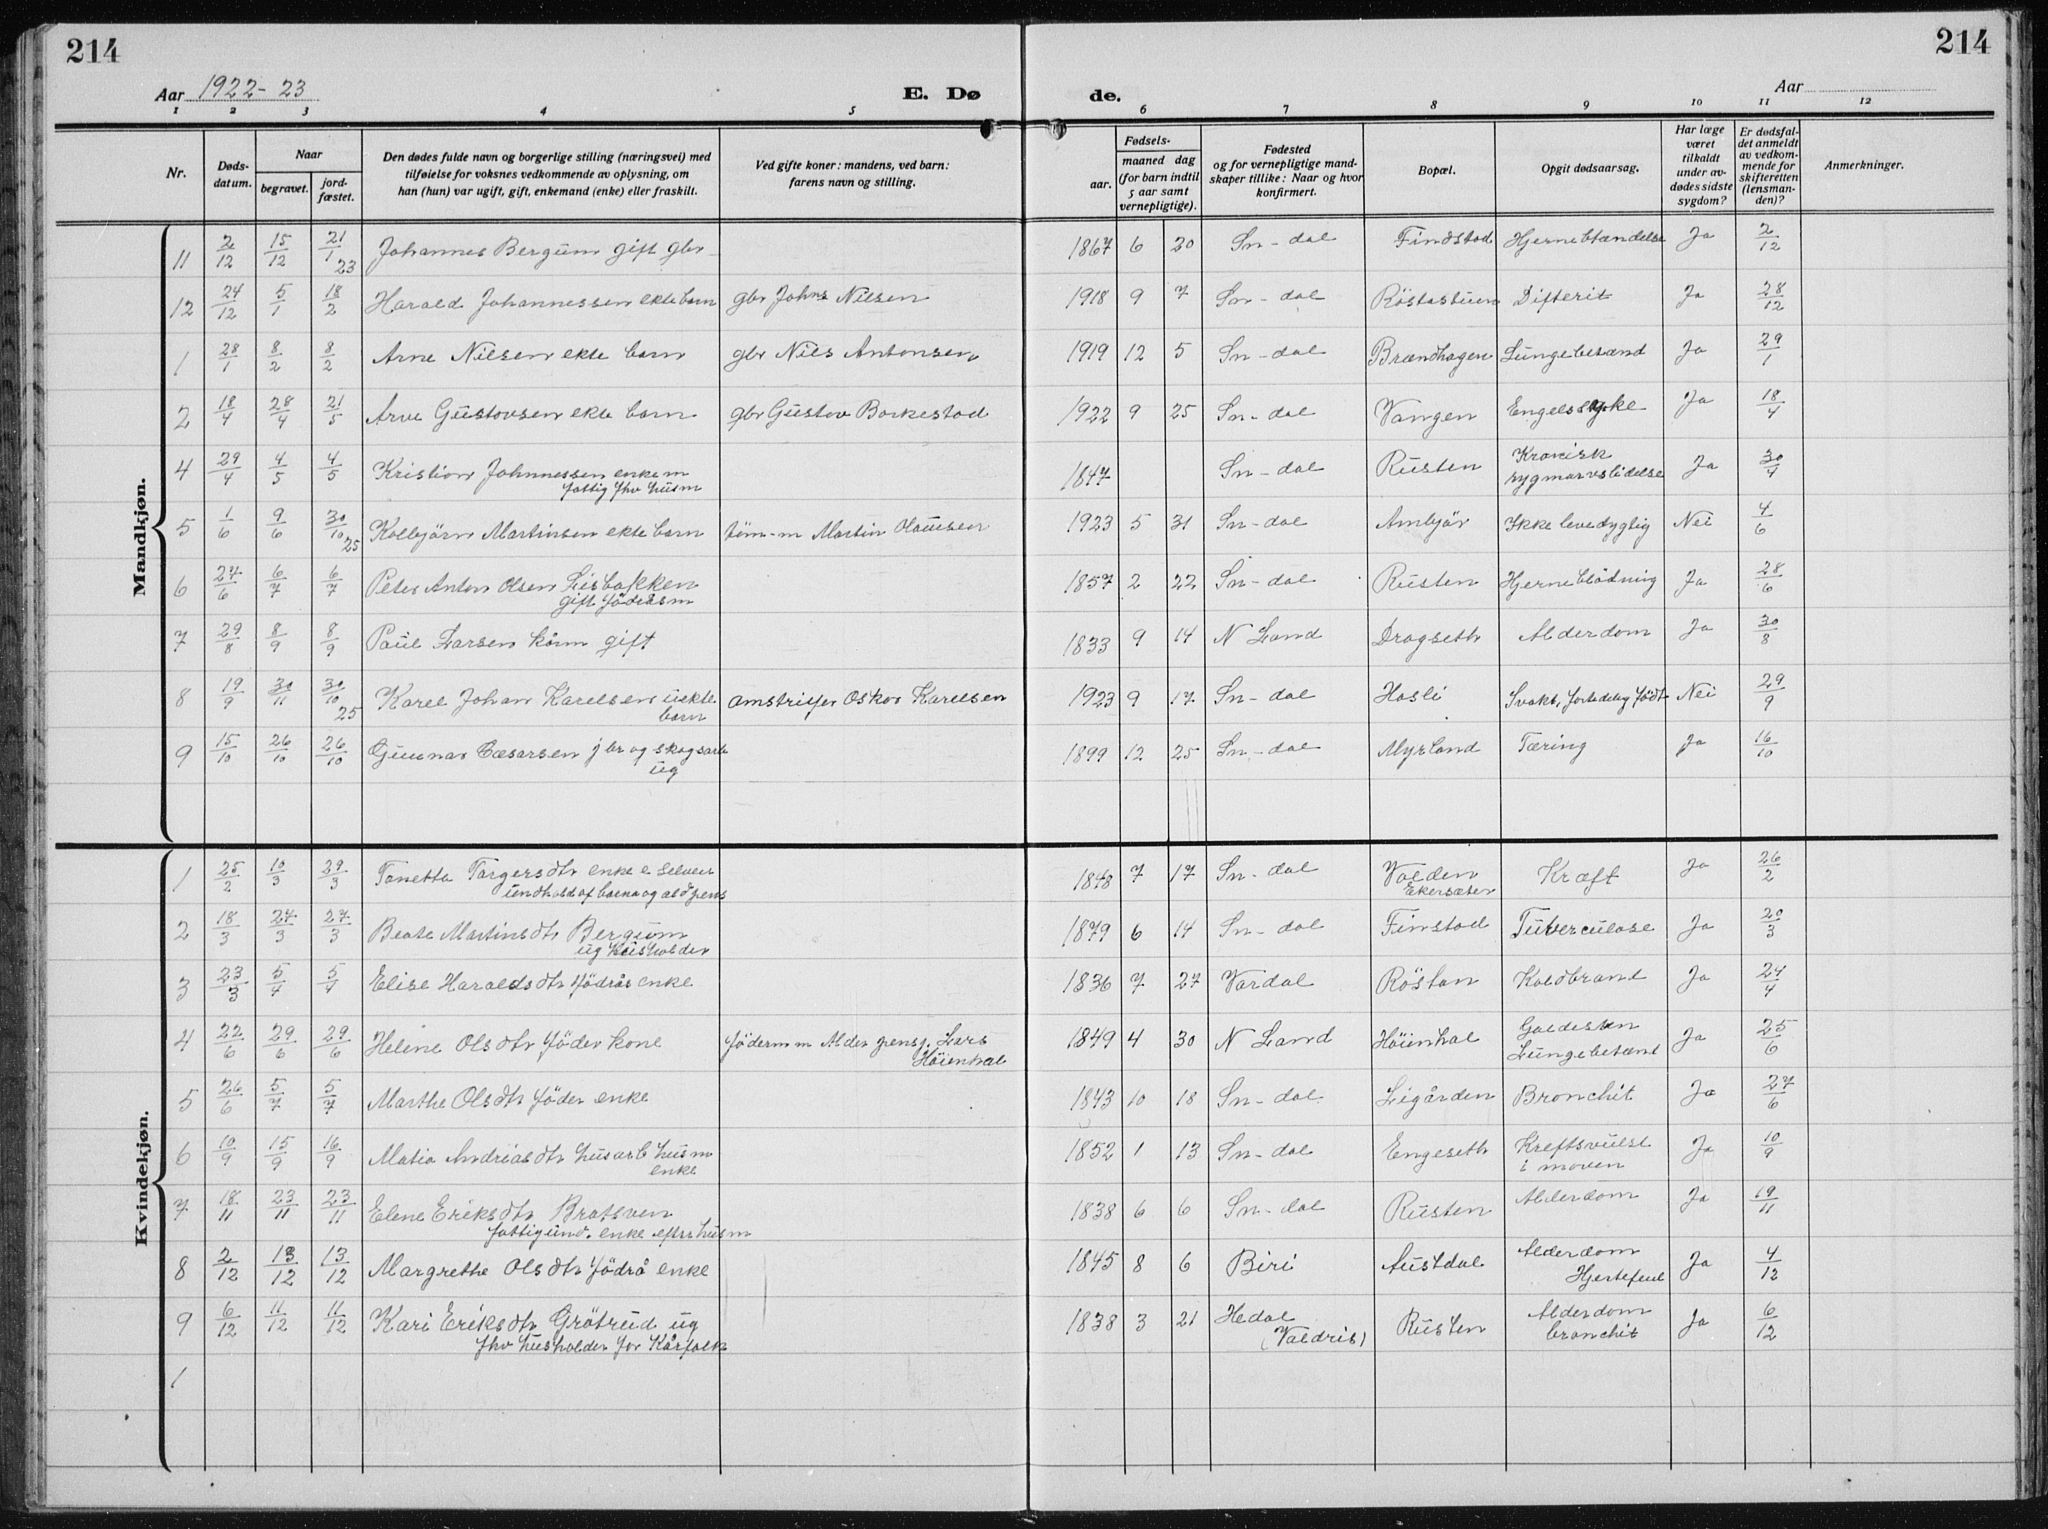 214
214
Aar 1922-23
E. Dø
de.
Aar
1 2 3 4 5 6 7 8 9 10 11 12
Nr.
Døds-
datum.
Naar
begravet.
jord-
fæstet.
Den dødes fulde navn og borgerlige stilling (næringsvei) med
tilføielse for voksnes vedkommende av oplysning, om
han (hun) var ugift, gift, enkemand (enke) eller fraskilt.
Ved gifte koner: mandens, ved barn:
farens navn og stilling.
Fødsels-
aar.
maaned dag
(for barn indtil
5 aar samt
vernepligtige).
Fødested
og for vernepligtige mand-
skaper tillike: Naar og hvor
konfirmert.
Bopæl.
Opgit dødsaarsag.
Har læge
været
tilkaldt
under av-
dødes sidste
sygdom?
Er dødsfal-
det anmeldt
av vedkom-
mende for
skifteretten
(lensman-
den)?
Anmerkninger.
Mandkjøn.
11 2/12 15/12 21/1 23 Johannes Bergum gift gbr 1867 6 20 Sn-dal Findstad Hjernebtændelse Ja 2/12
12 24/12 5/1 18/2 Harald Johannessen ekte barn gbr Johns Nilsen 1918 9 7 Sn-dal Röstastuen Difterit Ja 28/12
1 28/1 8/2 8/2 Arne Nilsen ekte barn gbr Nils Antonsen 1919 12 5 Sn-dal Brændhagen Lungebetænd Ja 29/1
2 18/4 28/4 21/5 Arve Gustavsen ekte barn gbr Gustav Borkestad 1922 9 25 Sn-dal Vangen Engelsksyke Ja 18/4
4 29/4 4/5 4/5 Kristian Johannessen enkem
fattig fhv husm 1847 Sn-dal Rusten Kronisk
rygmarvslidelse Ja 30/4
5 1/6 9/6 30/10 25 Kolbjörn Martinsen ekte barn töm-m Martin Olausen 1923 5 31 Sn-dal Ambjör Ikke levedygtig Nei 4/6
6 27/6 6/7 6/7 Peter Anton Olsen Lisbakken
gift föderåsm 1857 2 22 Sn-dal Rusten Hjerneblödning Ja 28/6
7 29/8 8/9 8/9 Paul Larsen kårm gift 1833 9 14 N Land Dragseth Alderdom Ja 30/8
8 19/9 30/11 30/10 25 Karel Johan Karelsen uekte
barn Oskar Karelsen 1923 9 17 Sn-dal Hasli Svakt, fortidelig födt Nei 29/9
9 15/10 26/10 26/10 Gunnar Cæsarsen jbr og skogsarb
ug 1899 12 25 Sn-dal Myrland Tæring Ja 16/10
Kvindekjøn.
1 25/2 10/3 29/3 Tonetta Torgersdtr enke e selveier
undhold af barna og aldpens 1848 7 17 Sn-dal Volden
Ekersæter Kræft Ja 26/2
2 18/3 27/3 27/3 Beate Martinsdtr Bergum
ug Husholder 1879 6 14 Sn-dal Finstad Tuberculose Ja 20/3
3 23/3 5/4 5/4 Elise Haraldsdtr födrås enke 1836 7 27 Vardal Röstan Koldbrand Ja 24/4
4 22/6 29/6 29/6 Helene Olsdtr föder kone födermm Alder pensj. Lars
Höienhal 1849 4 30 N Land Höienhal Galdesten
Lungebetænd Ja 25/6
5 26/6 5/7 5/7 Marthe Olsdtr föder enke 1843 10 18 Sn-dal Ligården Bronchit Ja 27/6
6 10/9 15/9 16/9 Matia Andriasdtr husarb husm
enke 1852 1 13 Sn-dal Engeseth Kreftsvulst
i maven Ja 10/9
7 18/11 23/11 23/11 Elene Eriksdtr Bratsven
fattigund. enke efter husm 1838 6 6 Sn-dal Rusten Alderdom Ja 19/11
8 2/12 13/12 13/12 Margrethe Olsdtr födrå enke 1845 8 6 Biri Austdal Alderdom
Hjertefeil Ja 4/12
9 6/12 11/12 11/12 Kari Eriksdtr Grötrud ug
fhv husholder for Kårfolk 1838 3 21 Hedal
(Valdris) Rusten Alderdom
bronchit Ja 6/12
1